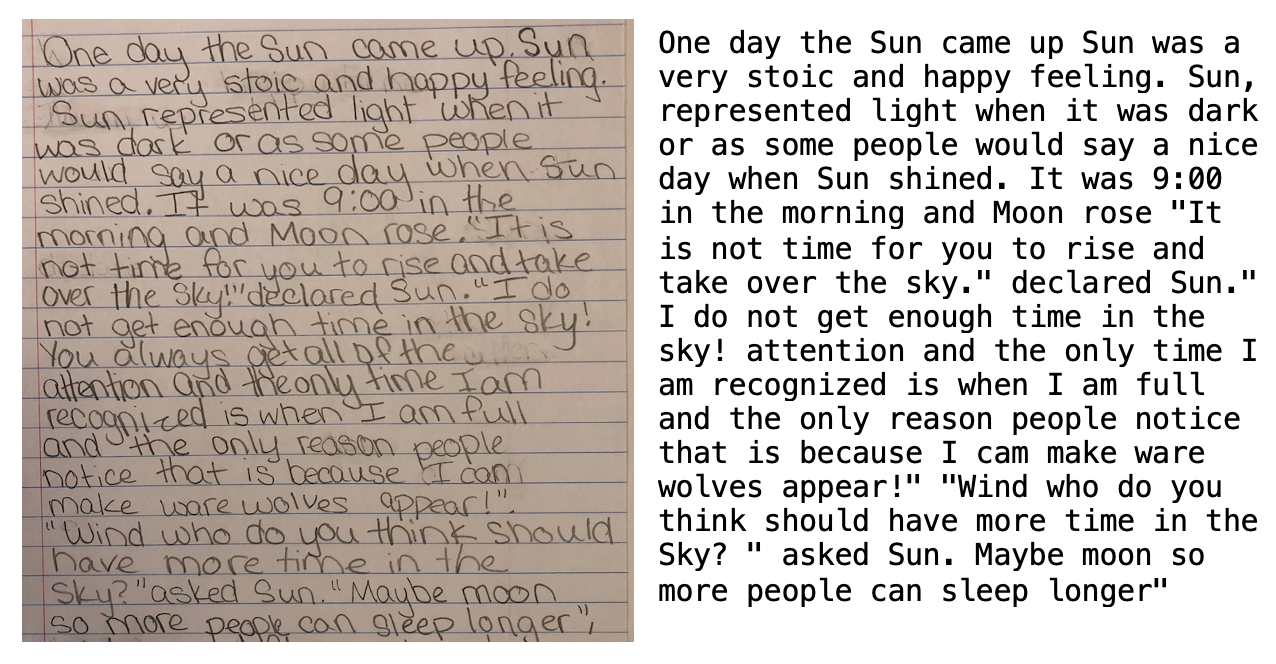 One day the Sun came up. Sun
was a very stoic and happy feeling.
Sun represented light when it
was dark or as some people
would say a nice day when Sun
shined. It was 9:00 in the
morning and Moon rose. "It is
not time for you to rise and take
over the Sky!" declared Sun. "I do
not get enough time in the sky!
You always get all of the
attention and the only time I am
recognized is when I am full
and the only reason people
notice that is because I cam
make ware wolves appear!".
"Wind who do you think should
have more time in the
Sky?" asked Sun. "Maybe moon
so more people can sleep longer",
One day the Sun came up Sun was a
very stoic and happy feeling. Sun,
represented light when it was dark
or as some people would say a nice
day when Sun shined. It was 9:00
in the morning and Moon rose "It
is not time for you to rise and
take over the sky." declared Sun."
I do not get enough time in the
sky! attention and the only time I
am recognized is when I am full
and the only reason people notice
that is because I cam make ware
wolves appear!" "Wind who do you
think should have more time in the
Sky? " asked Sun. Maybe moon so
more people can sleep longer"